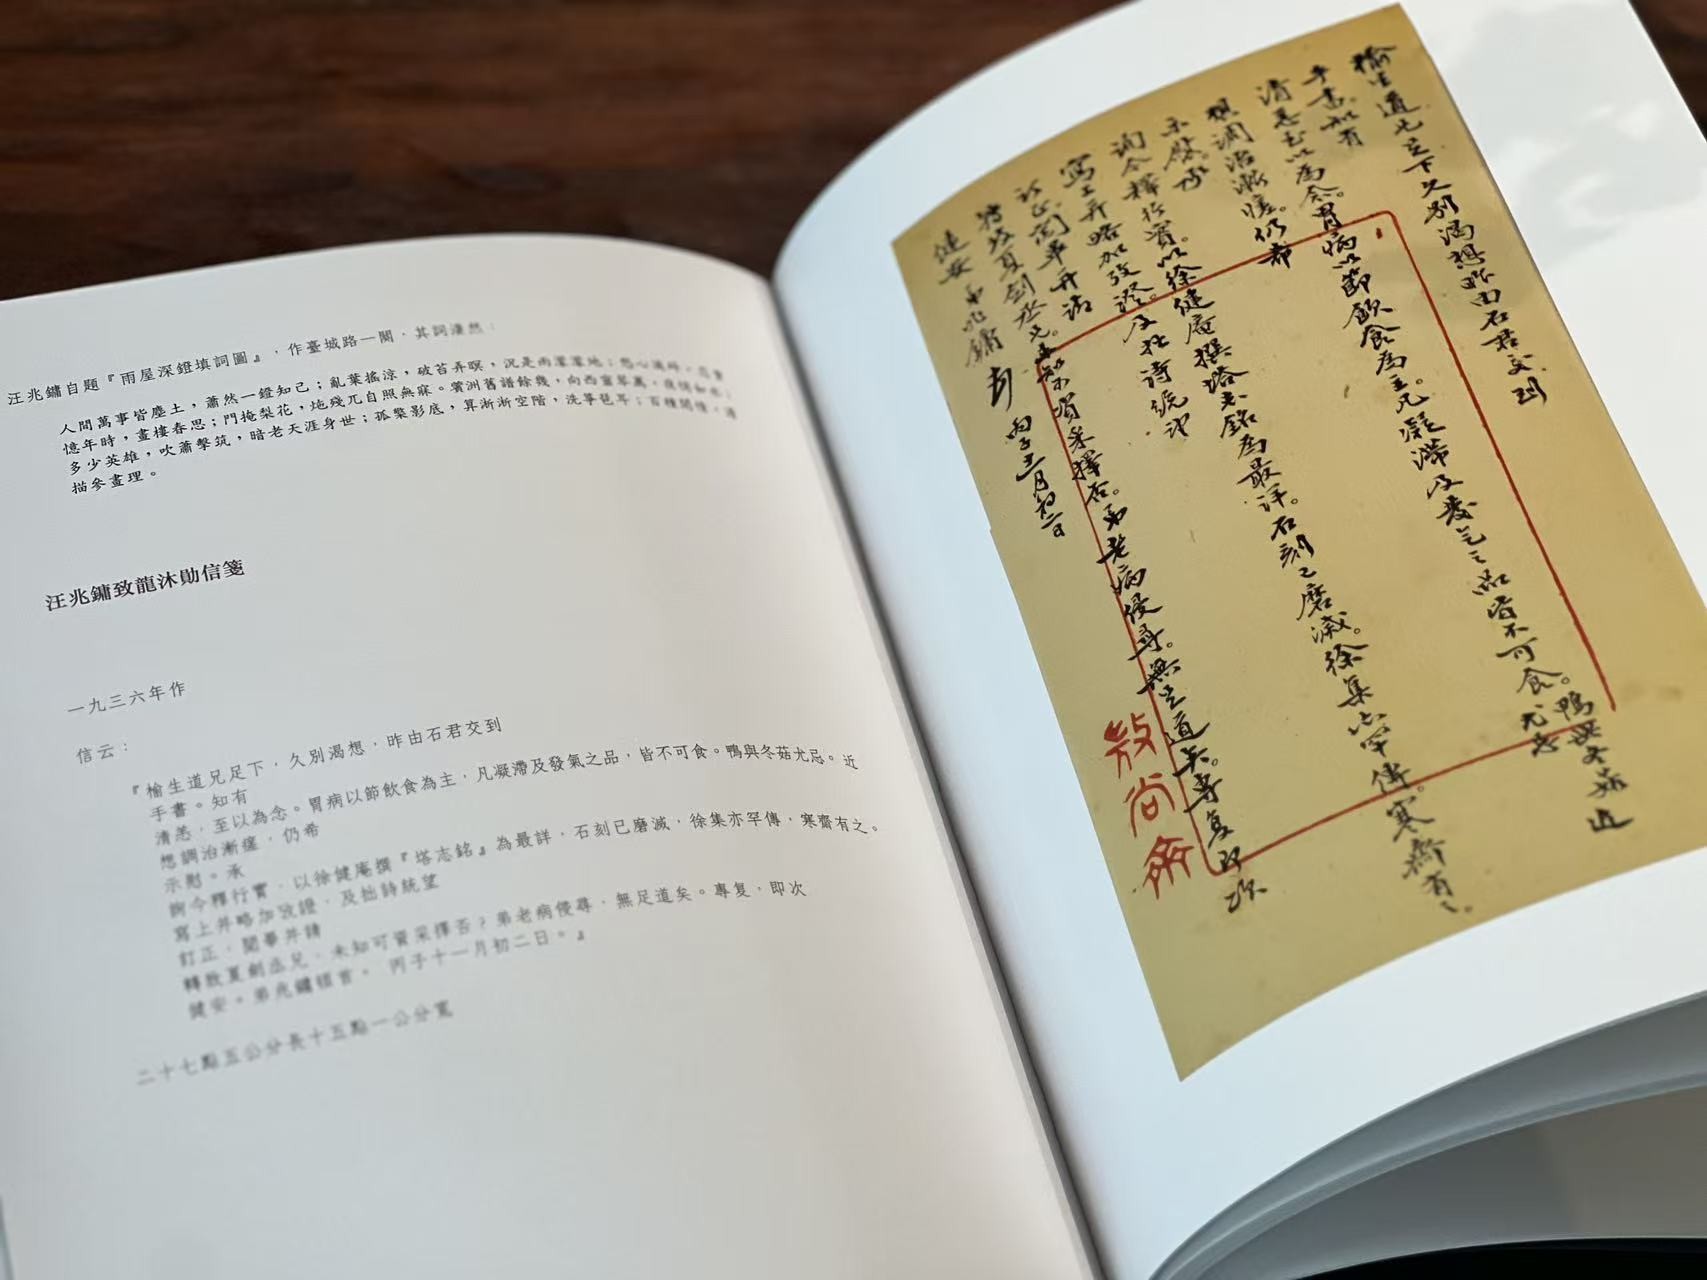 汪兆鏞自題『雨屋深鐙填詞圖』，作臺城路一闋，其詞淒然：
人間萬事皆塵土，蕭然一鐙知己；亂葉搖涼，破苔弄暝，沉是雨濛濛地；愁心滴碎，
憶年時，畫樓春思；門掩梨花，灺殘兀自照無寐。賓洲舊譜餘幾，向西窗翠萬，
多少英雄，吹簫擊筑，暗老天涯身世；孤檠影底，算淅淅空階，洗箏琶耳；百種閒情，
描參畫理。
汪兆鏞致龍沐勛信箋
一九三六年作
信云：
『榆生道兄足下，久別渴想，昨由石君交到
手書。知有
清恙，至以為念。胃病以節飲食為主，凡凝滯及發氣之品，皆不可食。鴨與冬菇尤忌。近
想調治漸瘥，仍希
示慰。承
詢今釋行實，以徐健庵撰『塔志銘』為最詳，石刻已磨滅，徐集亦罕傳，寒齋有之。
寫上并略加攷證，及拙詩統望
訂正，閱畢并請
轉致夏劍丞兄，未知可資采擇否？弟老病侵尋，無足道矣。專复，即次
健安。弟兆鏞頓首。 丙子十一月初二日。』
二十七點五公分長十五點一公分寬
榆生道兄足下久別渴想昨由石君交到
手書。知有
清恙至以為念。胃病以節飲食為主。凡凝滯及發气之品皆不可食。鴨與冬菇尤忌 近
想調治漸瘥。仍希
示慰。承
詢今釋行實。以徐健庵撰塔志銘為最詳。石刻已磨滅。徐集亦罕傳。寒齋有之。
寫上并略加攷證。及拙詩統望
訂正。閱畢并請
轉致夏劍丞兄。未知可資采擇否。弟老病侵尋。無足道矣。專复即次
健安 弟兆鏞 丙子十一月初二日
敩尚齋